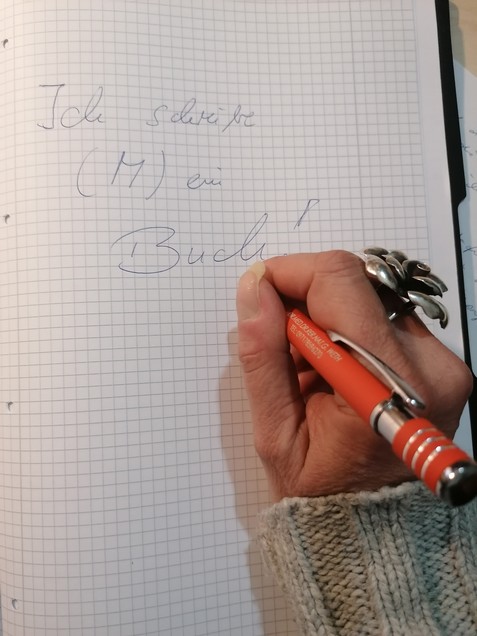 Ich schreibe
(M) ein
Buch!